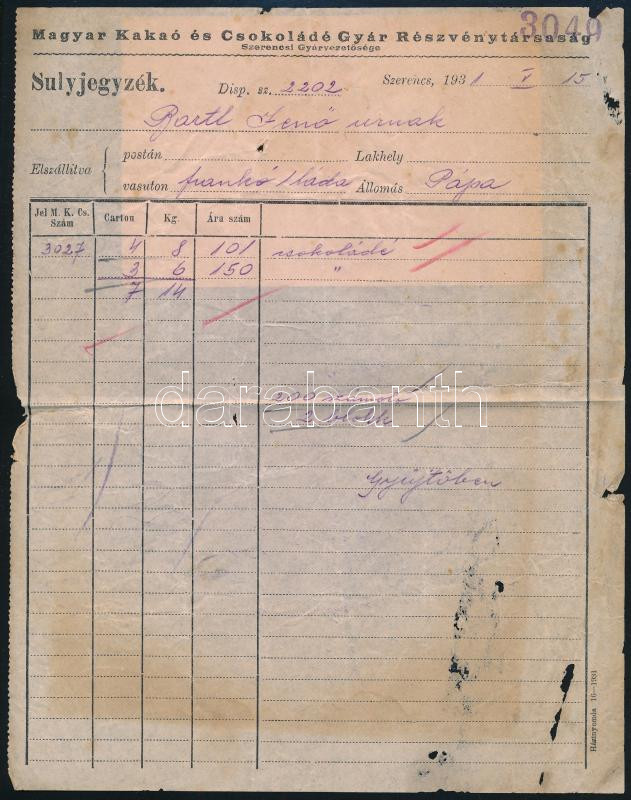 3049
Magyar Kakaó és Csokoládé Gyár Részvénytársaság
Szerencsi Gyárvezetősége
Sulyjegyzék. Disp. sz. 2202 Szerencs, 1931 V 15
Bartl Jenő urnak
Elszállitva postán Lakhely
vasuton frankó 1 láda Állomás Pápa
Jel M. K. Cs. Szám Carton Kg. Ára szám
3027 4 8 101 csokoládé
3 6 150 "
7 14
darabanth
200
Gyüjtőben
Háznyomda 16—1931